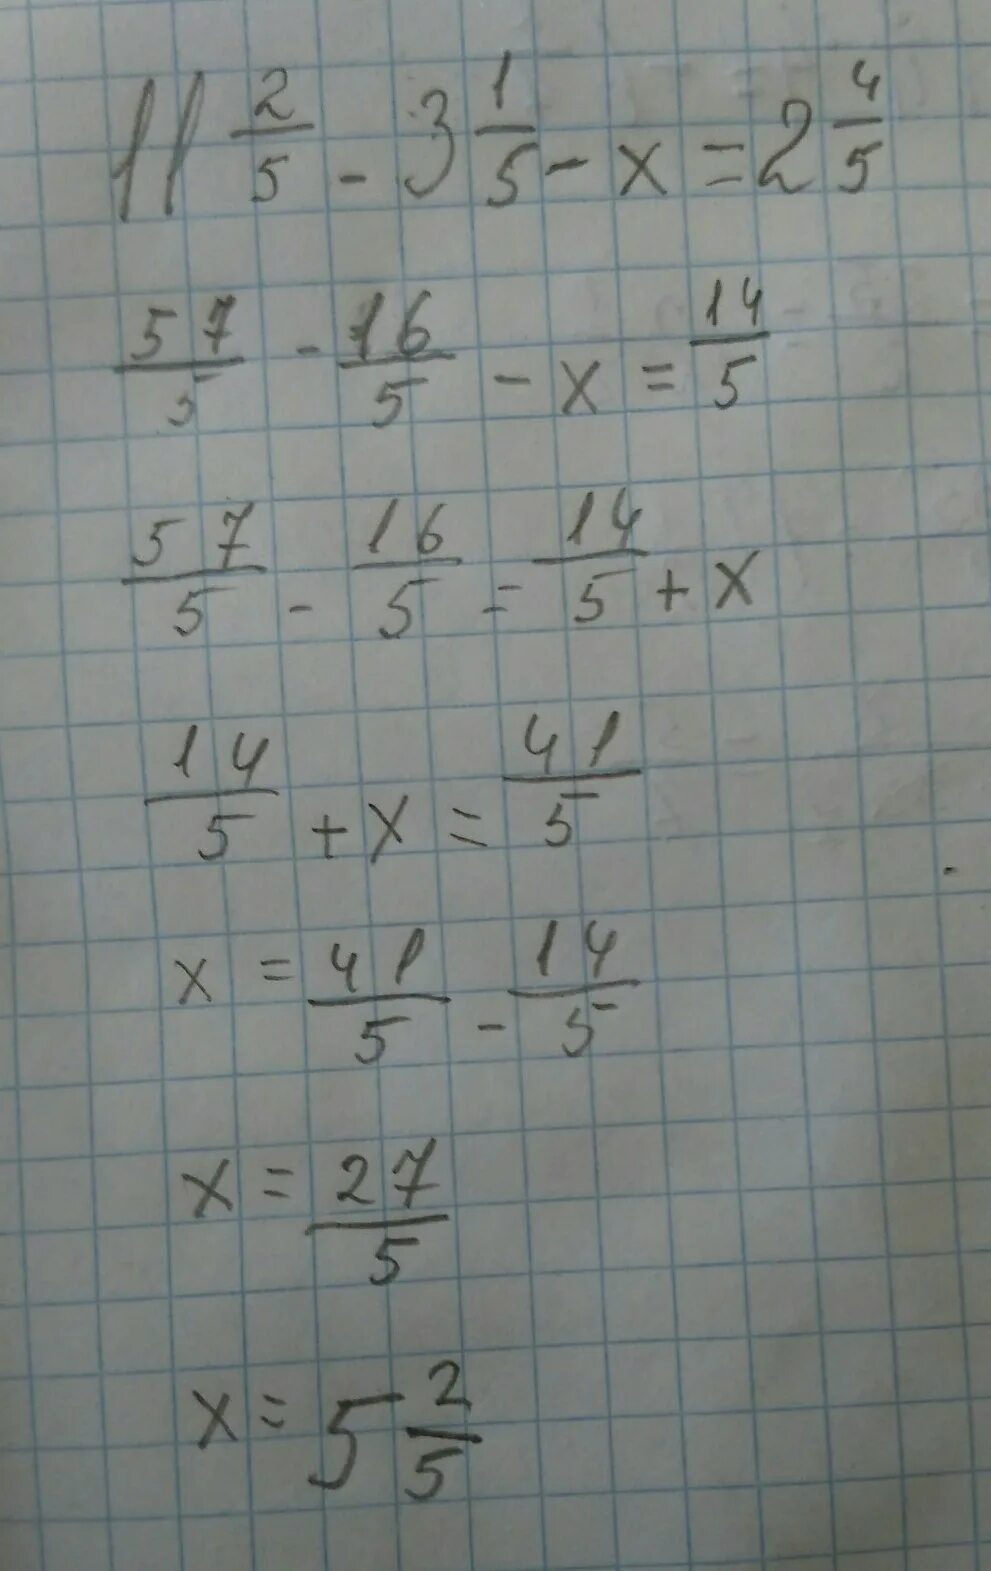 11 2/5 - 3 1/5 - x = 2 4/5
57/5 - 16/5 - x = 14/5
57/5 - 16/5 = 14/5 + x
14/5 + x = 41/5
x = 41/5 - 14/5
x = 27/5
x = 5 2/5